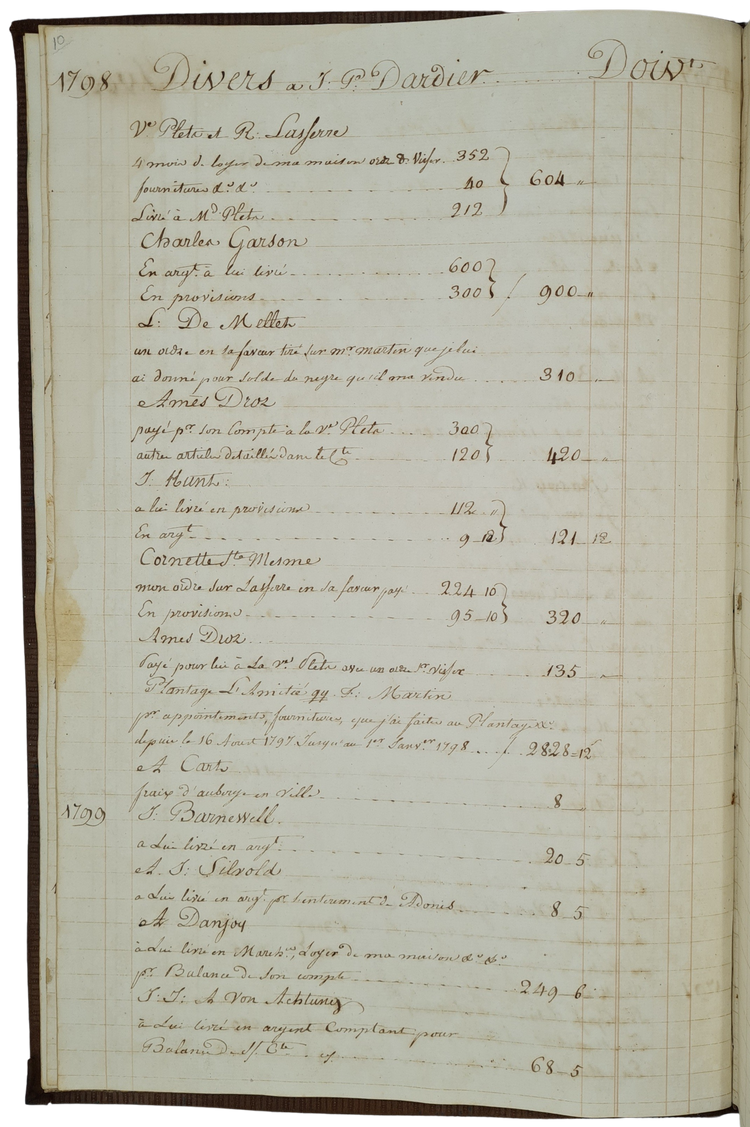 10
1798 Divers a J. Ps. Dardier Doivt
Ve Pleta et R. Lasserre
4 mois d. loyer de ma maison 352
fournitures do. do. 40 604 "
Livré à Md. Pleta 212
Charles Garson
En argt. à lui livré 600
En provisions 300 / 900 "
L: De Mellet
un ordre en sa faveur tiré sur mr. martin que je lui
ai donné pour solde du negre qu'il m'a vendu 310 "
Amés Droz
payé pr. son Compte à la Ve. Pleta 300
autres articles detaillés dans le Cte 120 420 "
J. Hunt:
a lui livré en provisions 112 "
En argt. 9 12 121 12
Cornette St Mesme
mon ordre sur Lasserre en sa faveur payé 224 10
En provisions 95 10 320 "
Ames Droz
Payé pour lui à La ve. Pleta avec un ordre 135 "
Plantage L'Amitié qq F. Martin
pr. appointements, fournitures, que j'ai faites au Plantage &c.
depuis le 16 Aoust 1797 Jusqu'au 1er Janvier 1798 / 2828 12
A Carts
fraix d'auberge en Ville 8
1799 J. Barnewell.
a Lui livré en argt. 20 5
A. J. Silvold
a Lui livré en argt. pr. l'enterement de Adonis 8 5
A Danjoy
à Lui livré en Marchs., Loyer de ma maison do. do.
pr. Balance de son compte 249 6
J: J: A Von Achtung
à Lui livré en argent Comptant pour
Balance d. S/. Cte 68 5